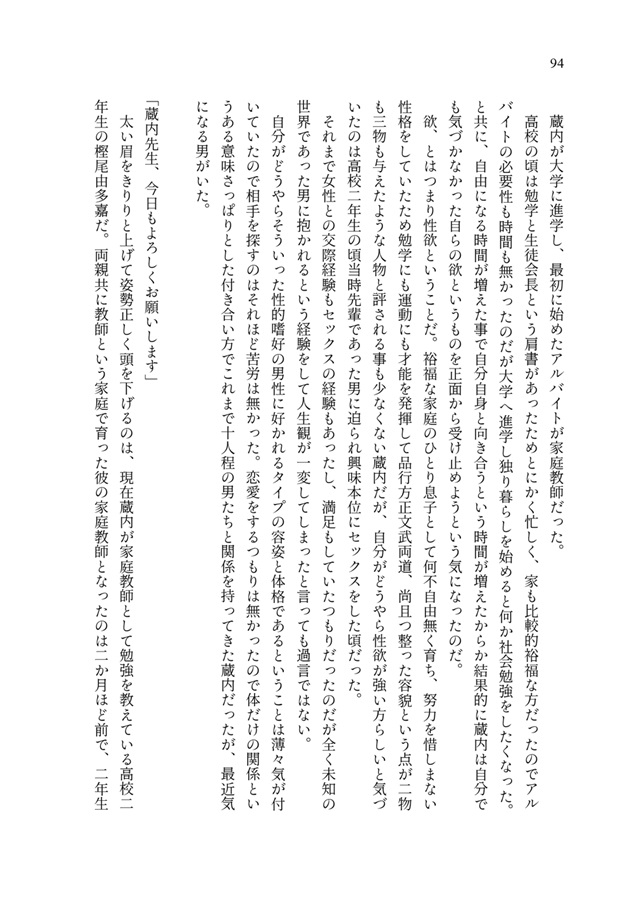 94
蔵内が大学に進学し、最初に始めたアルバイトが家庭教師だった。
高校の頃は勉学と生徒会長という肩書があったためとにかく忙しく、家も比較的裕福な方だったのでアル
バイトの必要性も時間も無かったのだが大学へ進学し独り暮らしを始めると何か社会勉強をしたくなった。
と共に、自由になる時間が増えた事で自分自身と向き合うという時間が増えたからか結果的に蔵内は自分で
も気づかなかった自らの欲というものを正面から受け止めようという気になったのだ。
欲、とはつまり性欲ということだ。裕福な家庭のひとり息子として何不自由無く育ち、努力を惜しまない
性格をしていたため勉学にも運動にも才能を発揮して品行方正文武両道、尚且つ整った容貌という点が二物
も三物も与えたような人物と評される事も少なくない蔵内だが、自分がどうやら性欲が強い方らしいと気づ
いたのは高校二年生の頃当時先輩であった男に迫られ興味本位にセックスをした頃だった。
それまで女性との交際経験もセックスの経験もあったし、満足もしていたつもりだったのだが全く未知の
世界であった男に抱かれるという経験をして人生観が一変してしまったと言っても過言ではない。
自分がどうやらそういった性的嗜好の男性に好かれるタイプの容姿と体格であるということは薄々気が付
いていたので相手を探すのはそれほど苦労は無かった。恋愛をするつもりは無かったので体だけの関係とい
うある意味さっぱりとした付き合い方でこれまで十人程の男たちと関係を持ってきた蔵内だったが、最近気
になる男がいた。
「蔵内先生、今日もよろしくお願いします」
太い眉をきりりと上げて姿勢正しく頭を下げるのは、現在蔵内が家庭教師として勉強を教えている高校二
年生の樫尾由多嘉だ。両親共に教師という家庭で育った彼の家庭教師となったのは二か月ほど前で、二年生